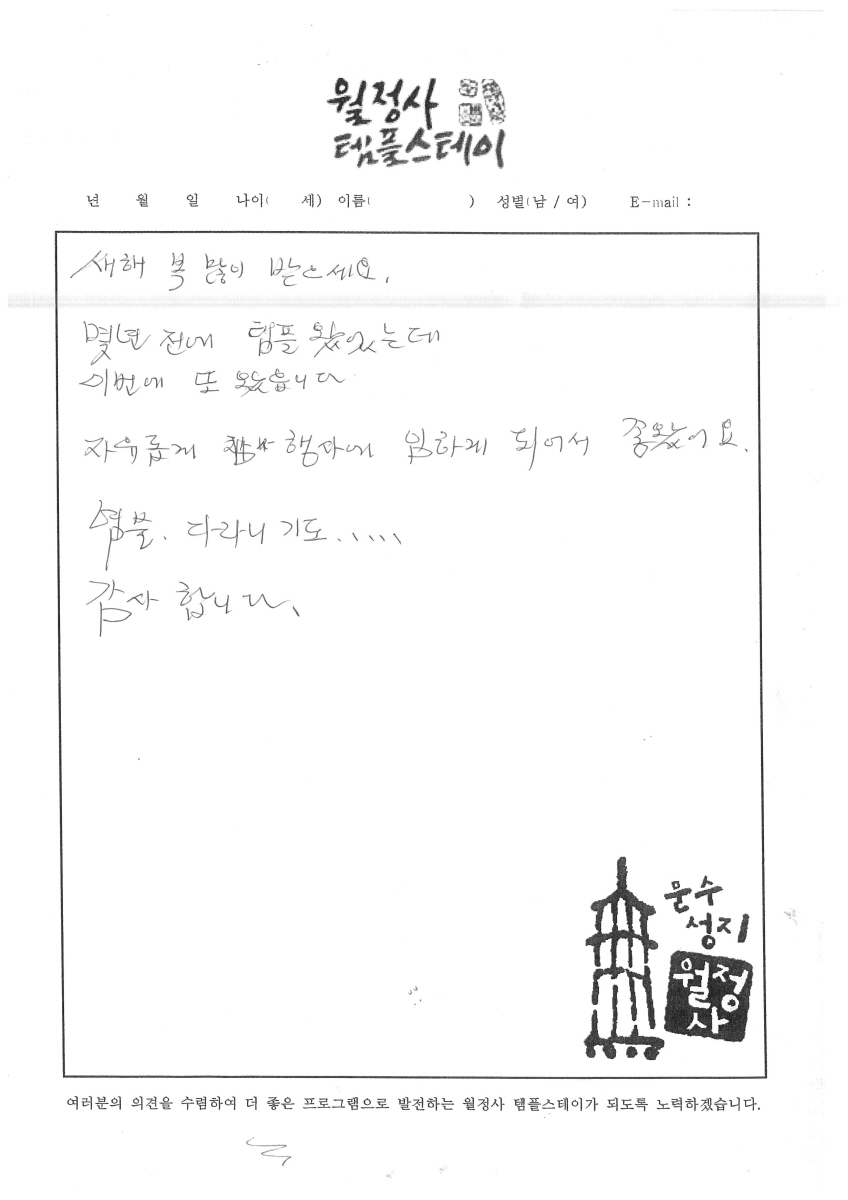 월정사
템플스테이
년 월 일 나이( 세) 이름( ) 성별(남 / 여) E-mail :
새해 복 많이 받으세요.
몇년 전에 템플 왔었는데
이번에 또 왔습니다
자유롭게 행사에 임하게 되어서 좋왔어요.
염불. 다라니 기도.....
감사 합니다.
문수
성지
월정
사
여러분의 의견을 수렴하여 더 좋은 프로그램으로 발전하는 월정사 템플스테이가 되도록 노력하겠습니다.